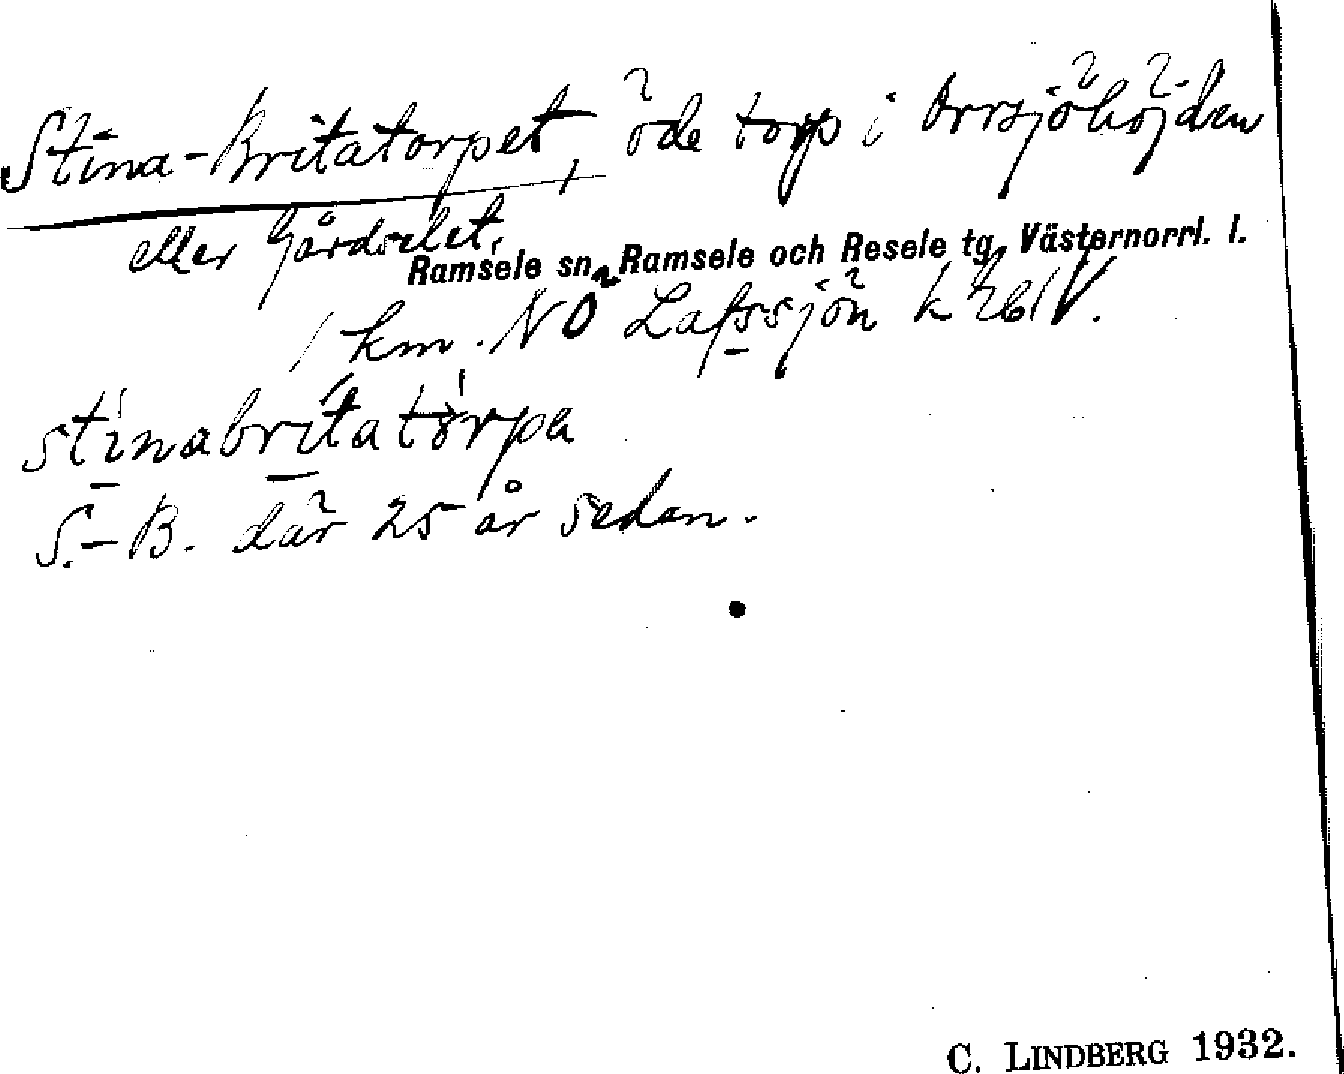 Stina-Britatorpet, öde torp i Orrsjöhöjden
eller Gårdselet.
Ramsele sn, Ramsele och Resele tg, Västernorrl. l.
1 km. NO Lafssjön k 261V.
stinabritatorpa
S.-B. där 25 år sedan.
C. LINDBERG 1932.